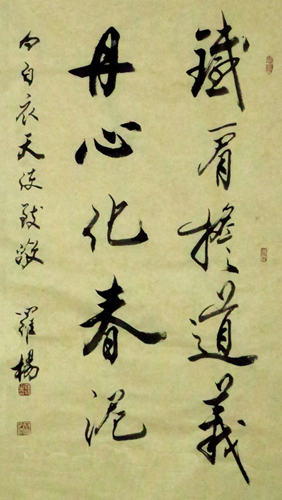 鐵肩擔道義
丹心化春泥
向白衣天使致敬 羅楊